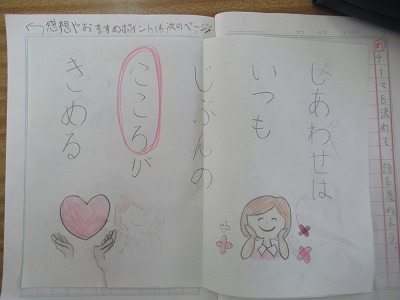 めテーマを決めて 詩を集めよう。
しあわせは
いつも
じぶんの
こころが
きめる
感想やおすすめポイントは次のページ